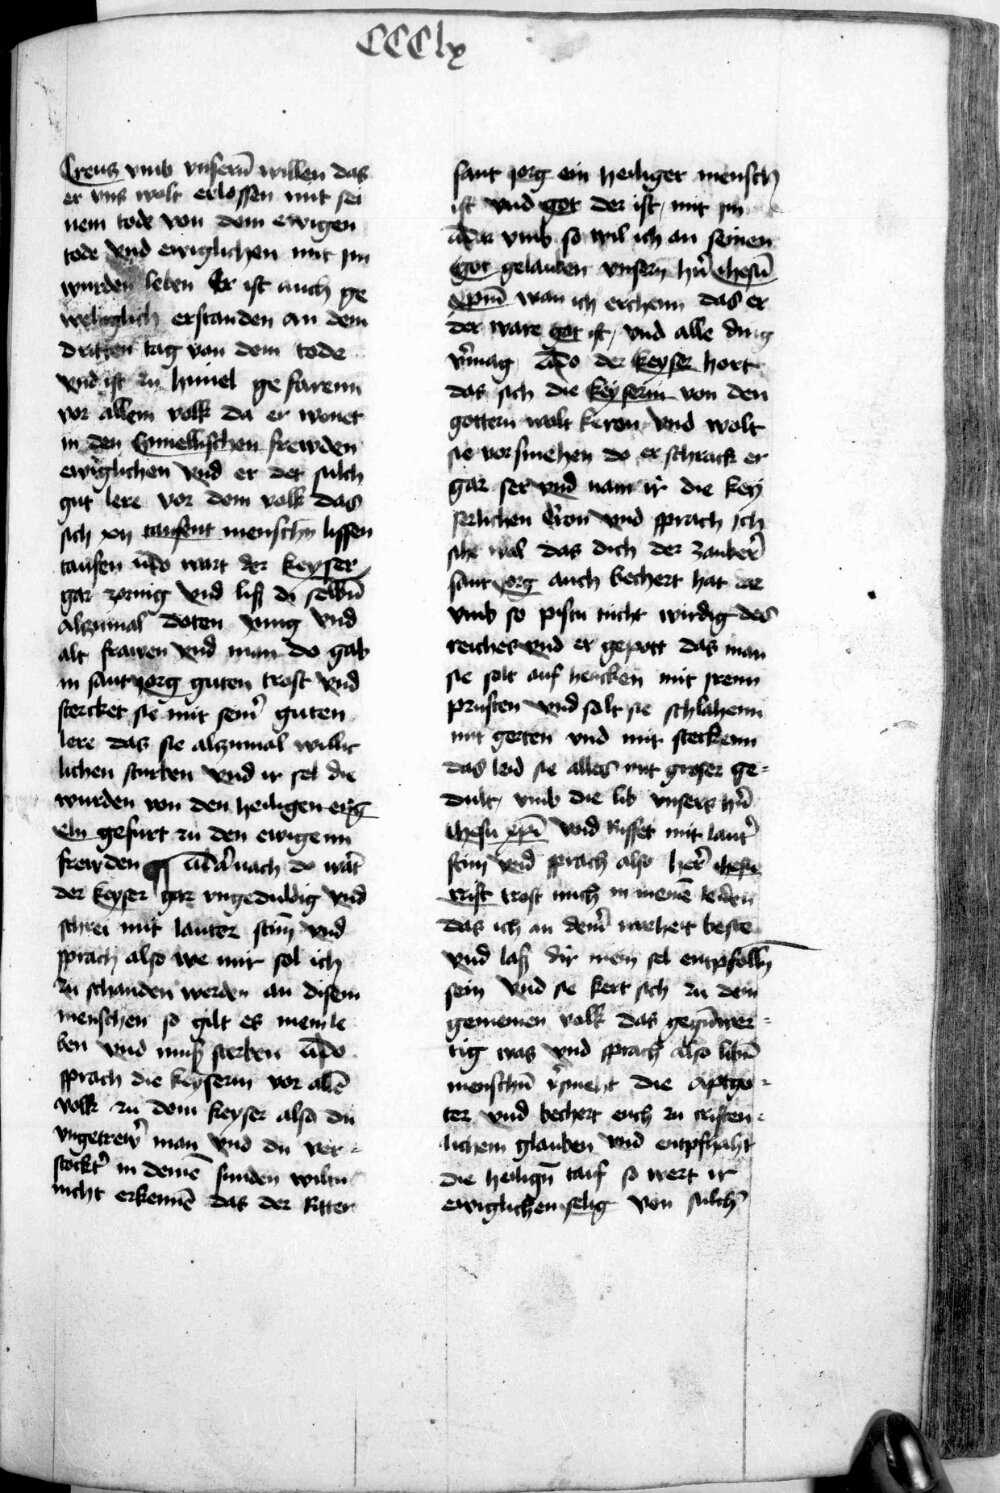 CCClx
Creus vmb vnsern̄ willen das
er vns wolt erlossen mit sei
nem tode von dem ewigen
tode vnd ewiglichen mit jm
wurden leben Er ist auch ge
weltiglich erstanden an dem
dritten tag von dem tode
vnd ist zu himel gefarenn
vor allem volk da er wonet
in den himellischen frewden
ewiglichen vnd er det sulch
gut lere vor dem volk das
sich xx taussent menschn̄ lissen
taufen do wart der keyser
gar zornig vnd liß di selbn̄
alzumal doten jung vnd
alt frawen vnd man do gab
in sant jorg guten trost vnd
stercket sie mit sein̄ guten
lere das sie alzumal willic
lichen sturben vnd ir sel die
wurden von den heiligen eng
eln gefurt zu den ewigenn
frewden ¶ darnach do wart
der keyser gar vngeduldig vnd
schrei mit lauter stim̄ vnd
sprach also we mir sol ich
zu schanden werden an disem
menschen so gilt es mein le
ben vnd muß sterben do
sprach die keyserin vor allē
volk zu dem keyser also du
vngetrew̄ man vnd du ver=
stockt̄ in deinē sunden wiltu
nicht erkennē das der Ritter
sant jorg ein heiliger mensch
ist vnd got der ist mit jm
dar vmb so wil ich an seinen
got gelauben vnsern hn̄ ihesū
xpm̄ wan ich erchenn das er
der ware got ist vnd alle ding
v̄mag do der keyser hort
das sich die keyserin von den
gottern wolt keren vnd wolt
sie vorsmehen do erschrack er
gar ser vnd nam ir die key
serlichen kron vnd sprach ich
sihe wol das dich der zauber̄
sant jorg auch bechert hat dar
vmb so pistu nicht wirdig des
reiches vnd er gepott das man
sie solt auf hencken mit irenn
prusten vnd solt sie schlahenn
mit gerten vnd mit steckenn
das leid sie alles mit groser ge=
dult vmb die lib vnsers hn̄
ihesu xpī vnd Ruffet mit laut̄
stim vnd sprach also her̄ ihesu
crist trost mich in meinē leiden
das ich an dein̄ warheit beste
vnd laß dir mein sel entpfolhn̄
sein vnd sie kert sich zu dem
gemeinen volk das gegn̄wer=
tig was vnd sprach also libn̄
menschn̄ v̄smeht die aptgo=
ter vnd bechert euch zu cristen=
lichem glauben vnd entpfhaht
die heilign̄ tauf so wert ir
ewiglichen selig von sulch̄